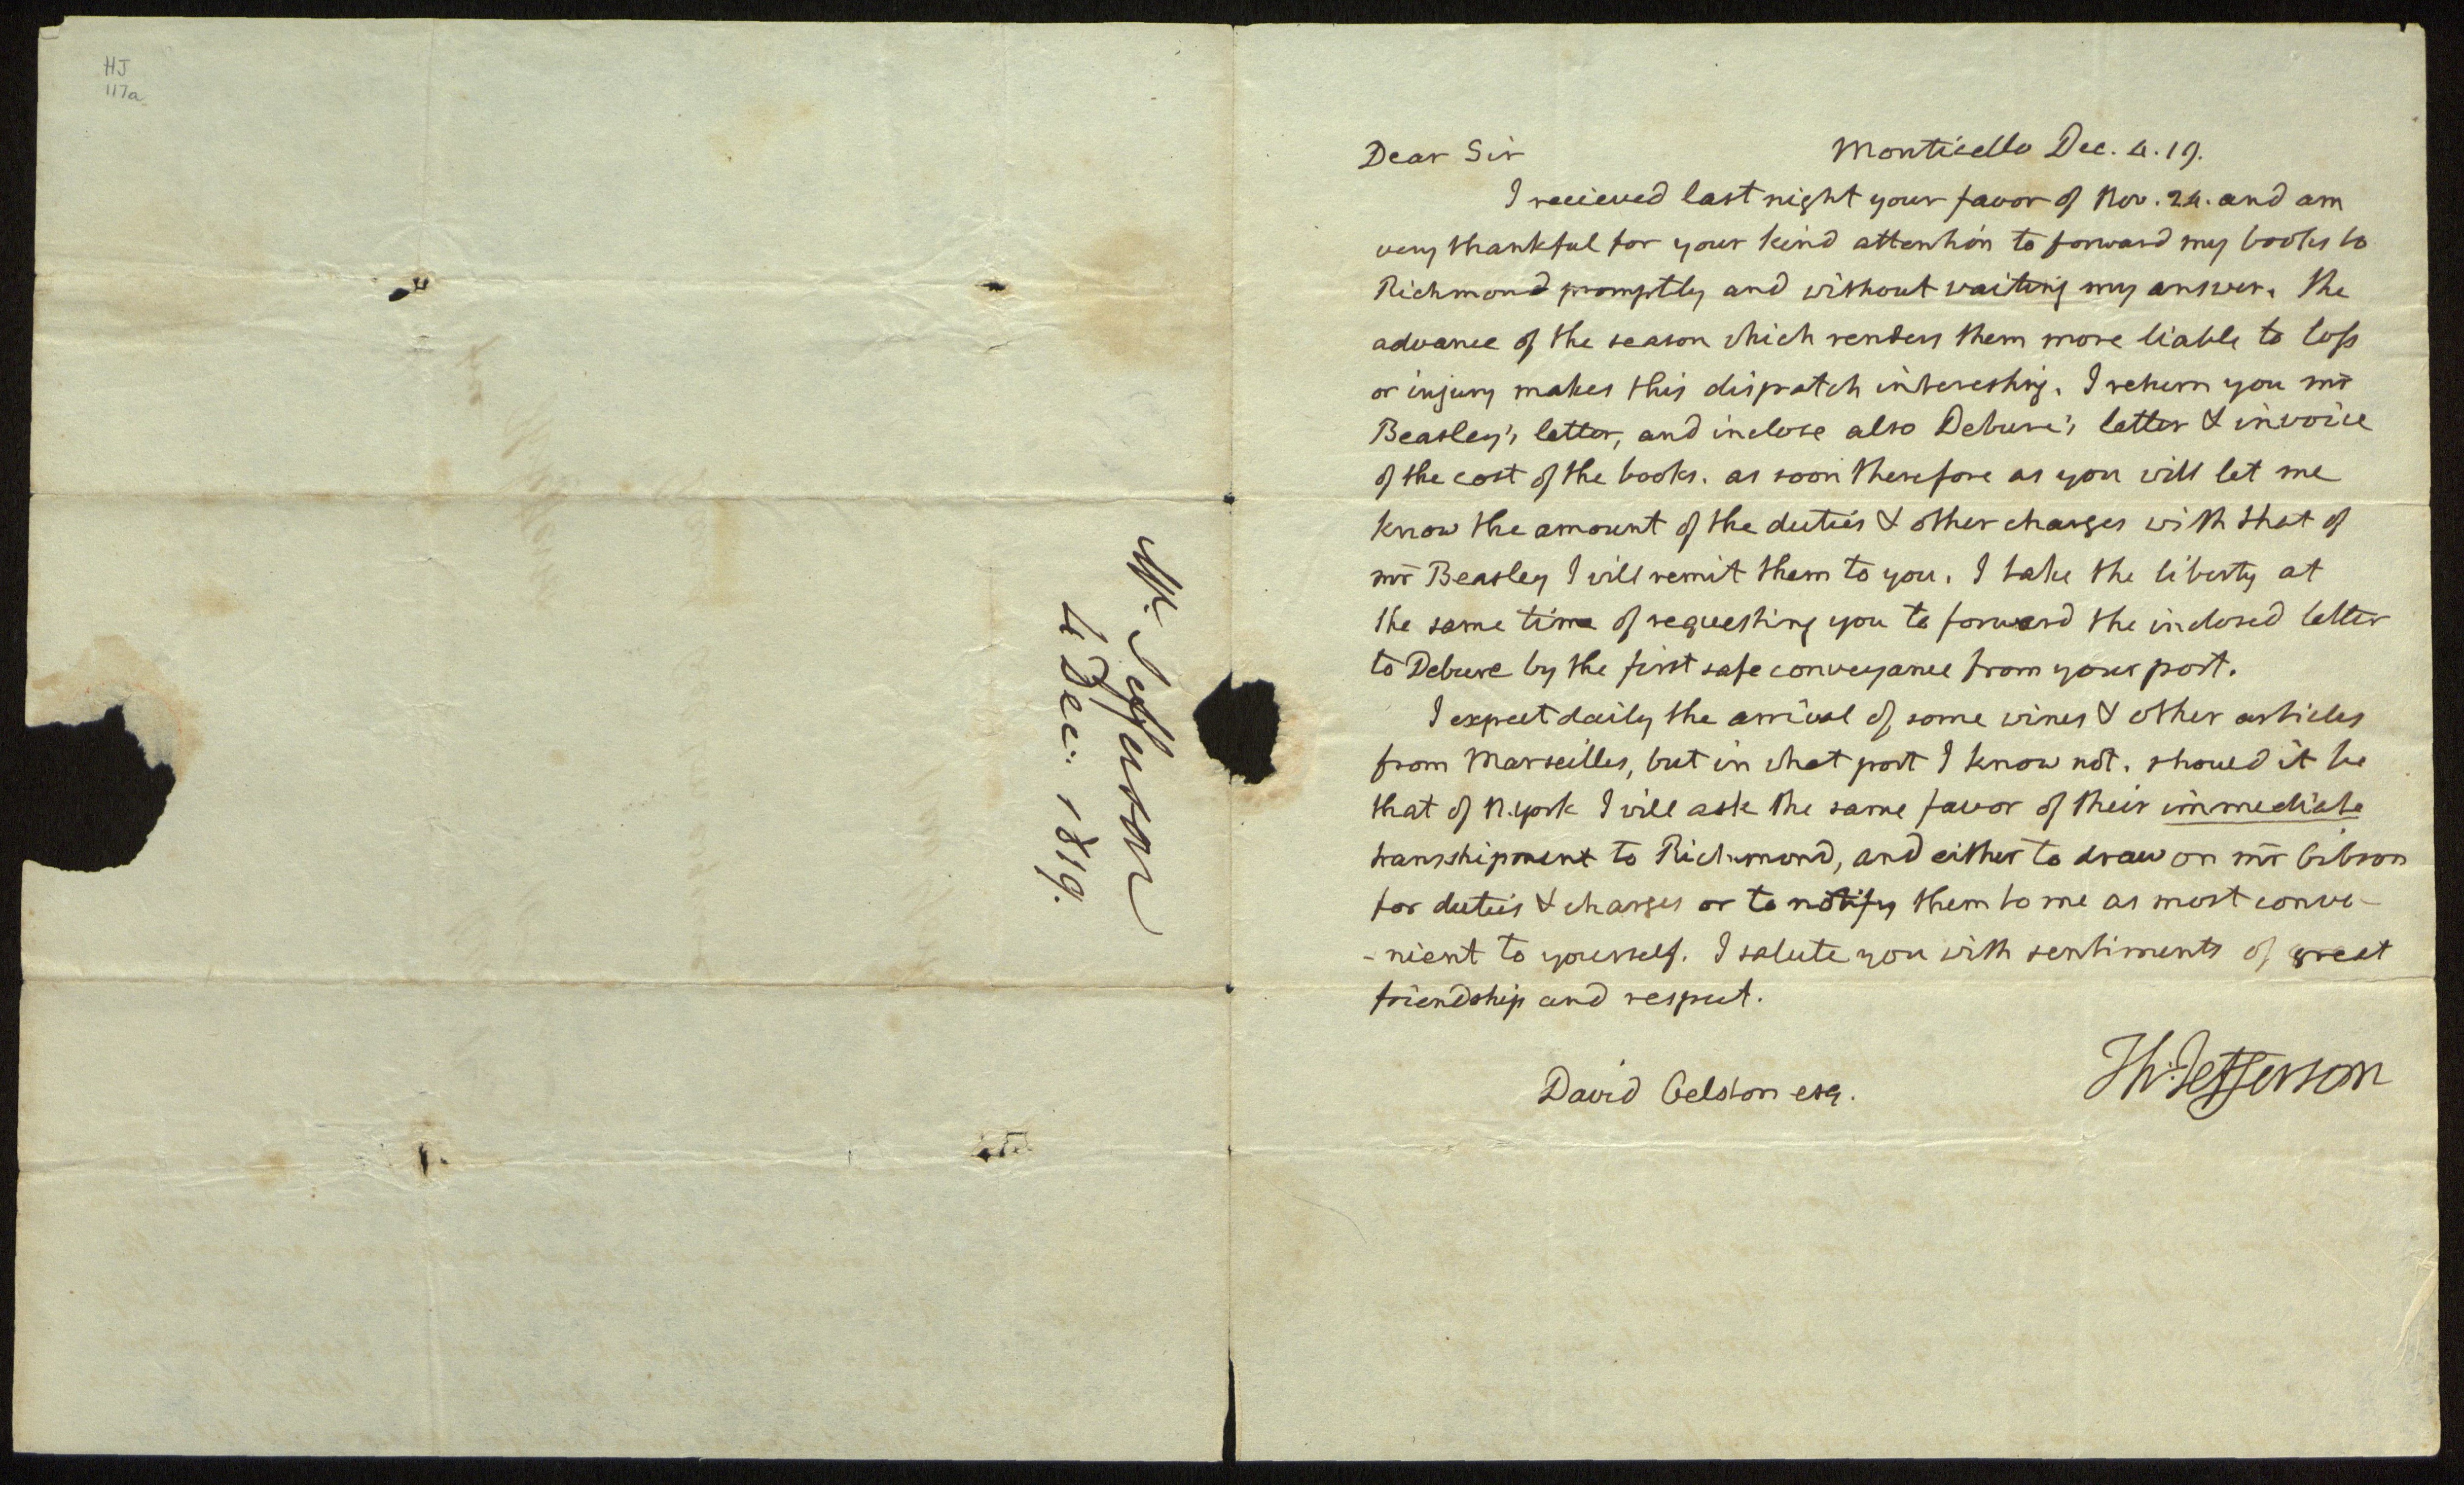 HJ
117a
Mr. Jefferson
4 Dec: 1819.
Dear Sir Monticello Dec. 4. 19.
I recieved last night your favor of Nov. 24. and am
very thankful for your kind attention to forward my books to
Richmond promptly and without waiting my answer. the
advance of the season which renders them more liable to loss
or injury makes this dispatch interesting. I return you mr
Beasley's letter, and inclose also Debure's letter & invoice
of the cost of the books. as soon therefore as you will let me
know the amount of the duties & other charges with that of
mr Beasley I will remit them to you. I take the liberty at
the same time of requesting you to forward the inclosed letter
to Debure by the first safe conveyance from your port.
I expect daily the arrival of some wines & other articles
from Marseilles, but in what port I know not. should it be
that of N. York I will ask the same favor of their immediate
transshipment to Richmond, and either to draw on mr Gibson
for duties & charges or to notify them to me as most conve-
-nient to yourself. I salute you with sentiments of great
friendship and respect.
Th: Jefferson
David Gelston esq.